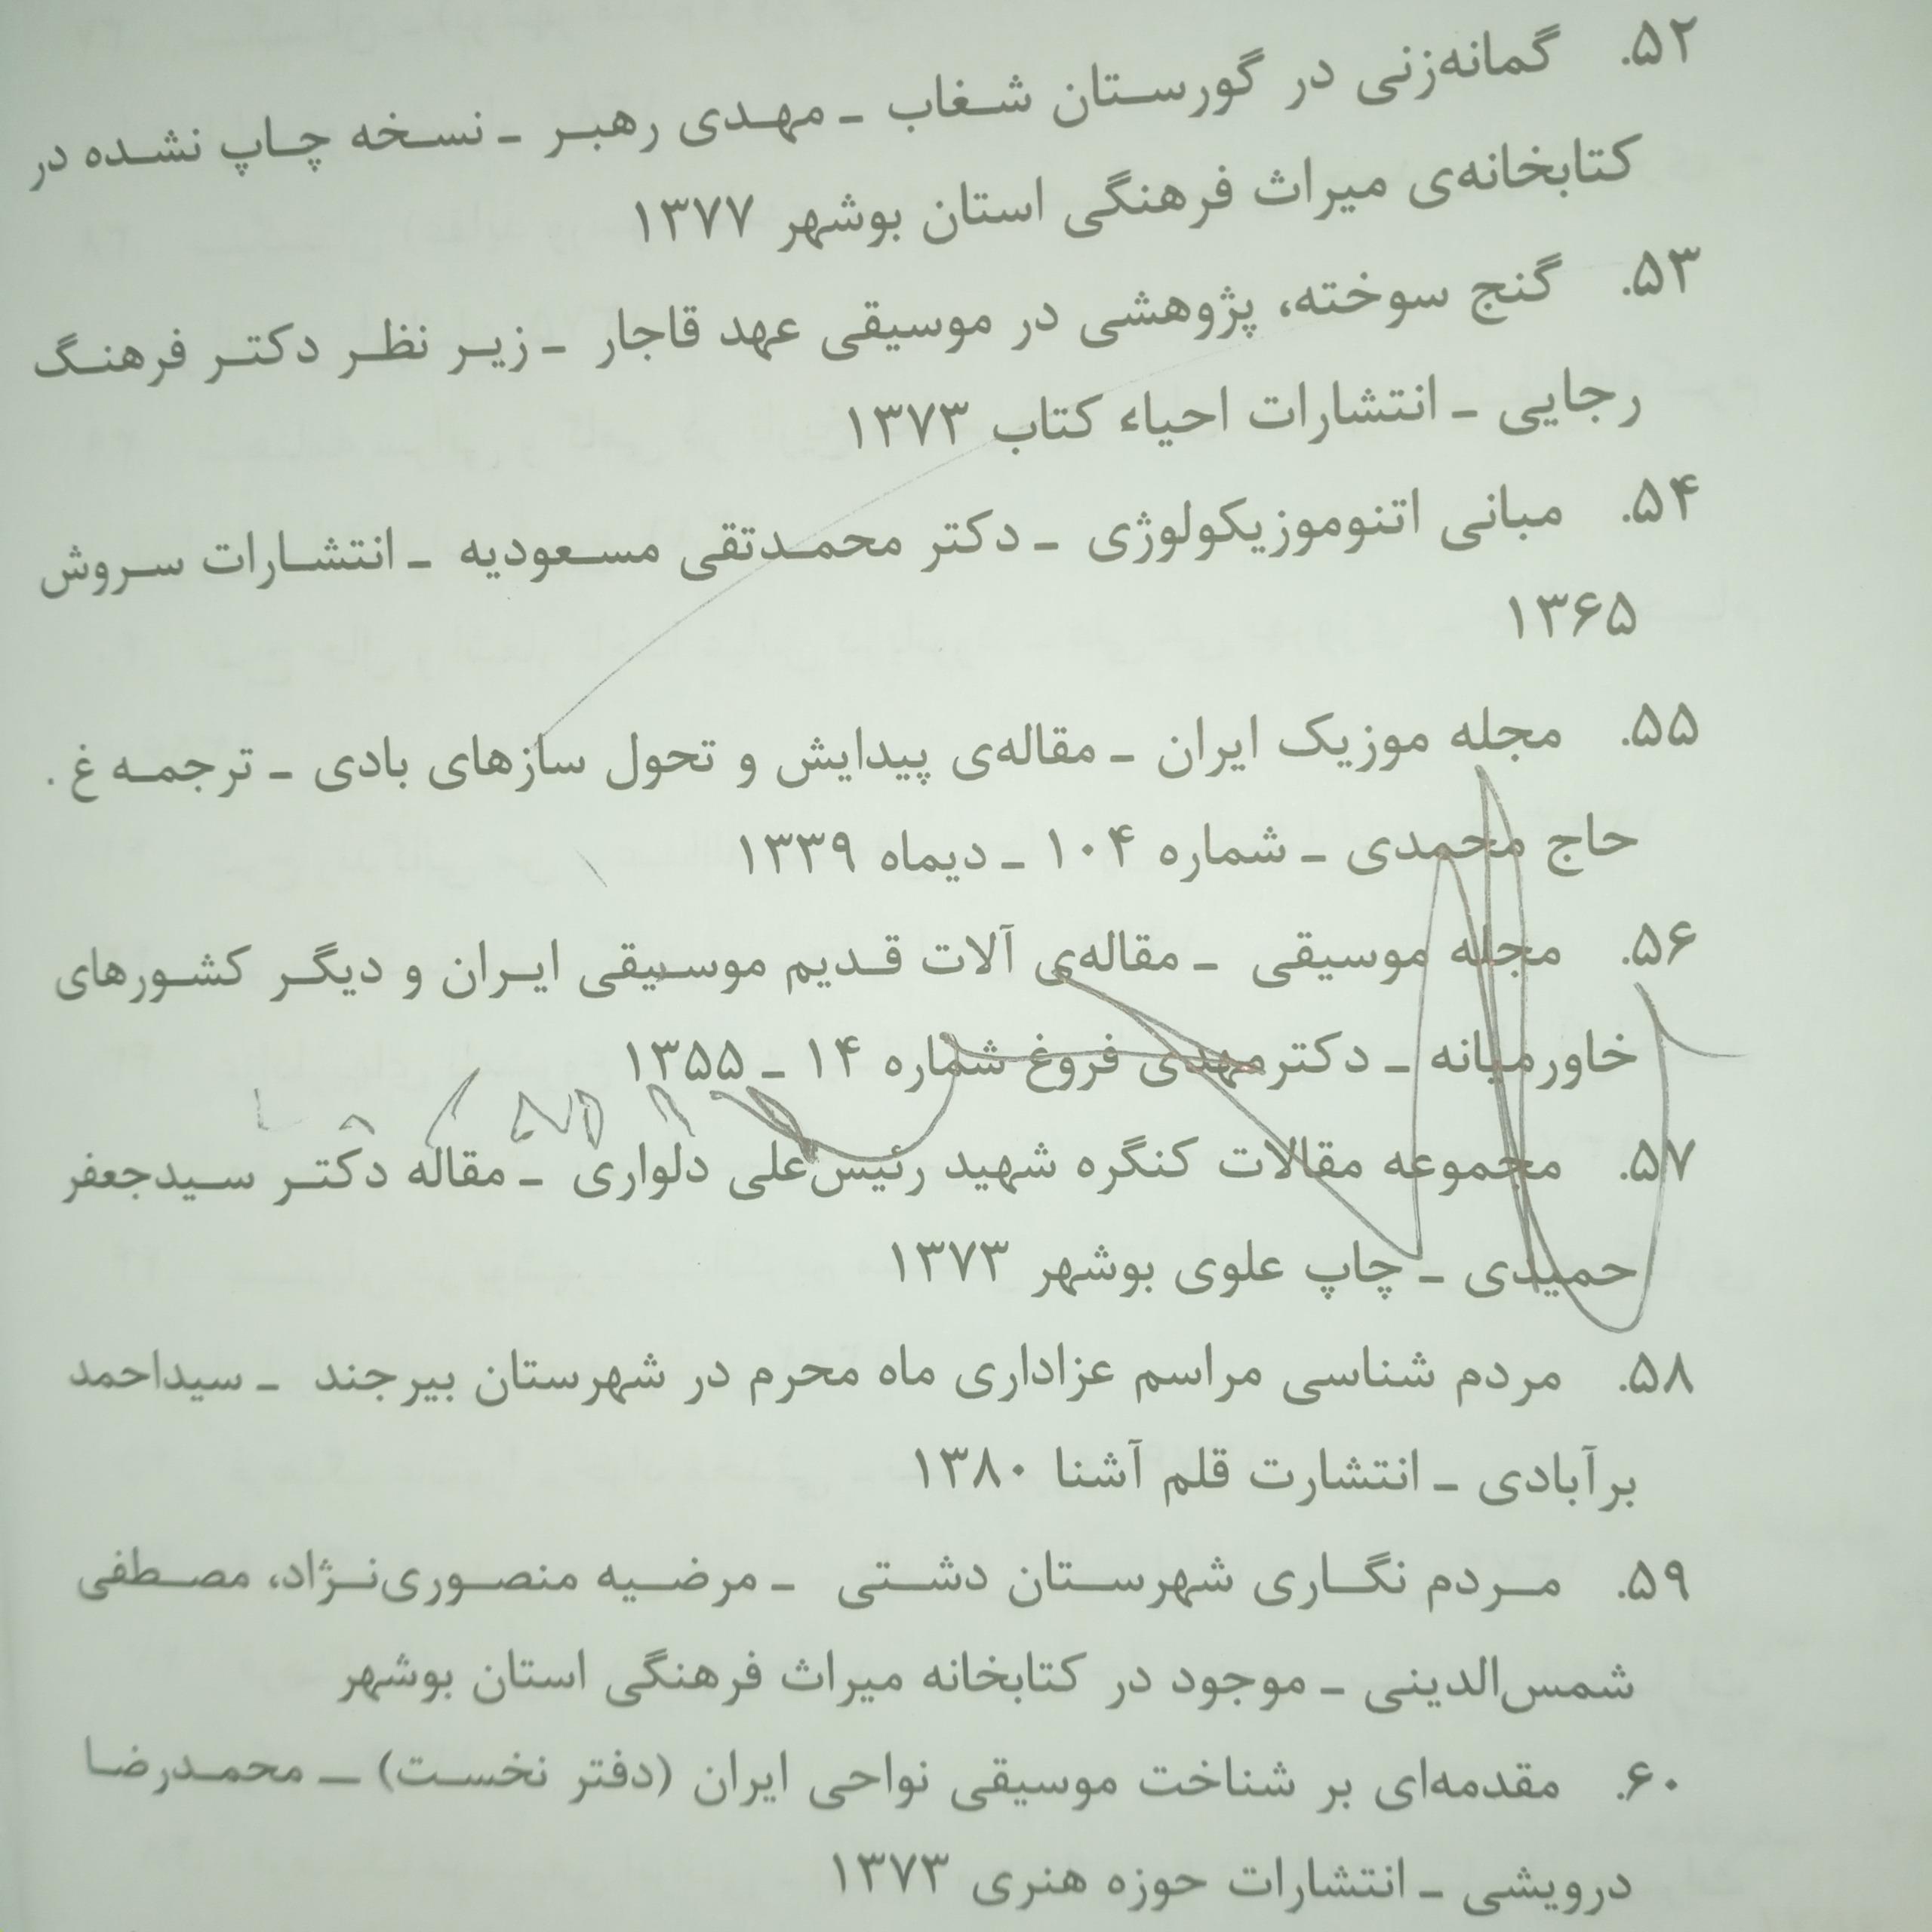 ۵۲. گمانه‌زنی در گورستان شغاب ـ مهدی رهبر ـ نسخه چاپ نشده در
کتابخانه‌ی میراث فرهنگی استان بوشهر ۱۳۷۷
۵۳. گنج سوخته، پژوهشی در موسیقی عهد قاجار ـ زیر نظر دکتر فرهنگ
رجایی ـ انتشارات احیاء کتاب ۱۳۷۳
۵۴. مبانی اتنوموزیکولوژی ـ دکتر محمدتقی مسعودیه ـ انتشارات سروش
۱۳۶۵
۵۵. مجله موزیک ایران ـ مقاله‌ی پیدایش و تحول سازهای بادی ـ ترجمه غ .
حاج محمدی ـ شماره ۱۰۴ ـ دیماه ۱۳۳۹
۵۶. مجله موسیقی ـ مقاله‌ی آلات قدیم موسیقی ایران و دیگر کشورهای
خاورمیانه ـ دکترمهدی فروغ شماره ۱۴ ـ ۱۳۵۵
۵۷. مجموعه مقالات کنگره شهید رئیس‌علی دلواری ـ مقاله دکتر سیدجعفر
حمیدی ـ چاپ علوی بوشهر ۱۳۷۳
۵۸. مردم شناسی مراسم عزاداری ماه محرم در شهرستان بیرجند ـ سیداحمد
برآبادی ـ انتشارت قلم آشنا ۱۳۸۰
۵۹. مردم نگاری شهرستان دشتی ـ مرضیه منصوری‌نژاد، مصطفی
شمس‌الدینی ـ موجود در کتابخانه میراث فرهنگی استان بوشهر
۶۰. مقدمه‌ای بر شناخت موسیقی نواحی ایران (دفتر نخست) ـ محمدرضا
درویشی ـ انتشارات حوزه هنری ۱۳۷۳